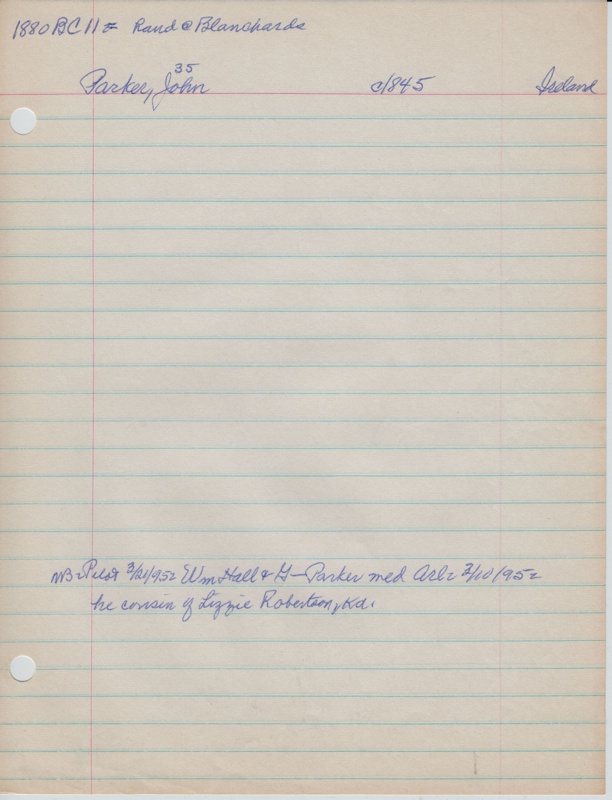 1880 BC 11= Rand @ Blanchards
35
Parker, John c1845 Ireland
NB=Pilot 3/21/95= Wm Hall & G- Parker med Arl= 3/10/95=
he cousin of Lizzie Robertson, Kd.